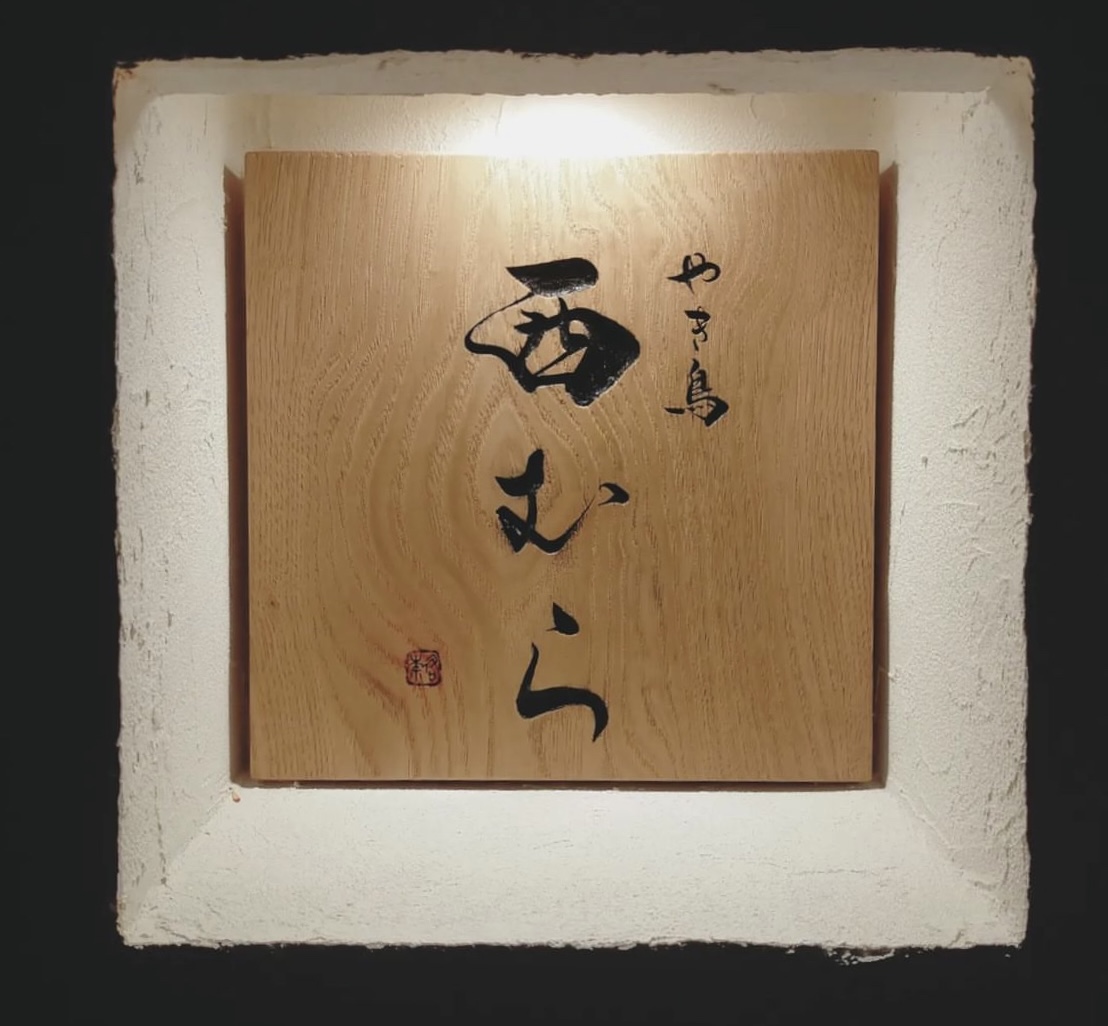 やき鳥
西むら